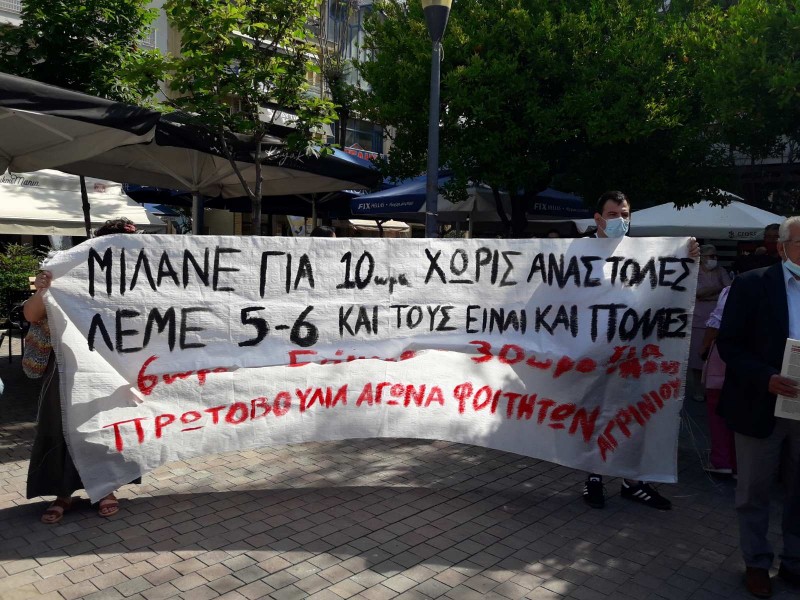 ΜΙΛΑΝΕ ΓΙΑ 10ωρα ΧΩΡΙΣ ΑΝΑΣΤΟΛΕΣ
ΛΕΜΕ 5-6 ΚΑΙ ΤΟΥΣ ΕΙΝΑΙ ΚΑΙ ΠΟΛΕΣ
6ωρο 30ωρο
ΠΡΩΤΟΒΟΥΛΙΑ ΑΓΩΝΑ ΦΟΙΤΗΤΩΝ ΑΓΡΙΝΙΟΥ
FIX
FIX